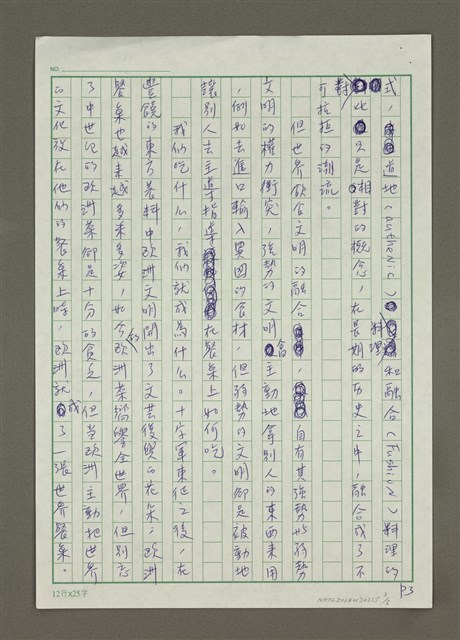 NO.
式，道地（authentic）料理和融合（Fusion）料理的
對比只是相對的概念，在長期的历史之中，融合成了不
可抗拒的潮流。
但世界飲食文明的融合，自有其強勢与弱勢
文明的權力衝突，強勢的文明會主動地拿別人的東西来用
，例如去進口輸入異國的食材，但弱勢的文明卻是被動地
讓別人去主導指導在餐桌上如何吃。
我們吃什么，我們就成為什么。十字軍東征之後，在
豐饒的東方養料中欧洲文明開出了文芸後興的花朵，欧洲
餐桌也越来越多来多姿，如今的欧洲菜嚮譽全世界，但別忘
了中世紀的欧洲菜卻是十分的貧乏，但当欧洲主動地世界
的文化放在他們的餐桌上時，欧洲就成了一張世界餐桌。
12行x25字
P3